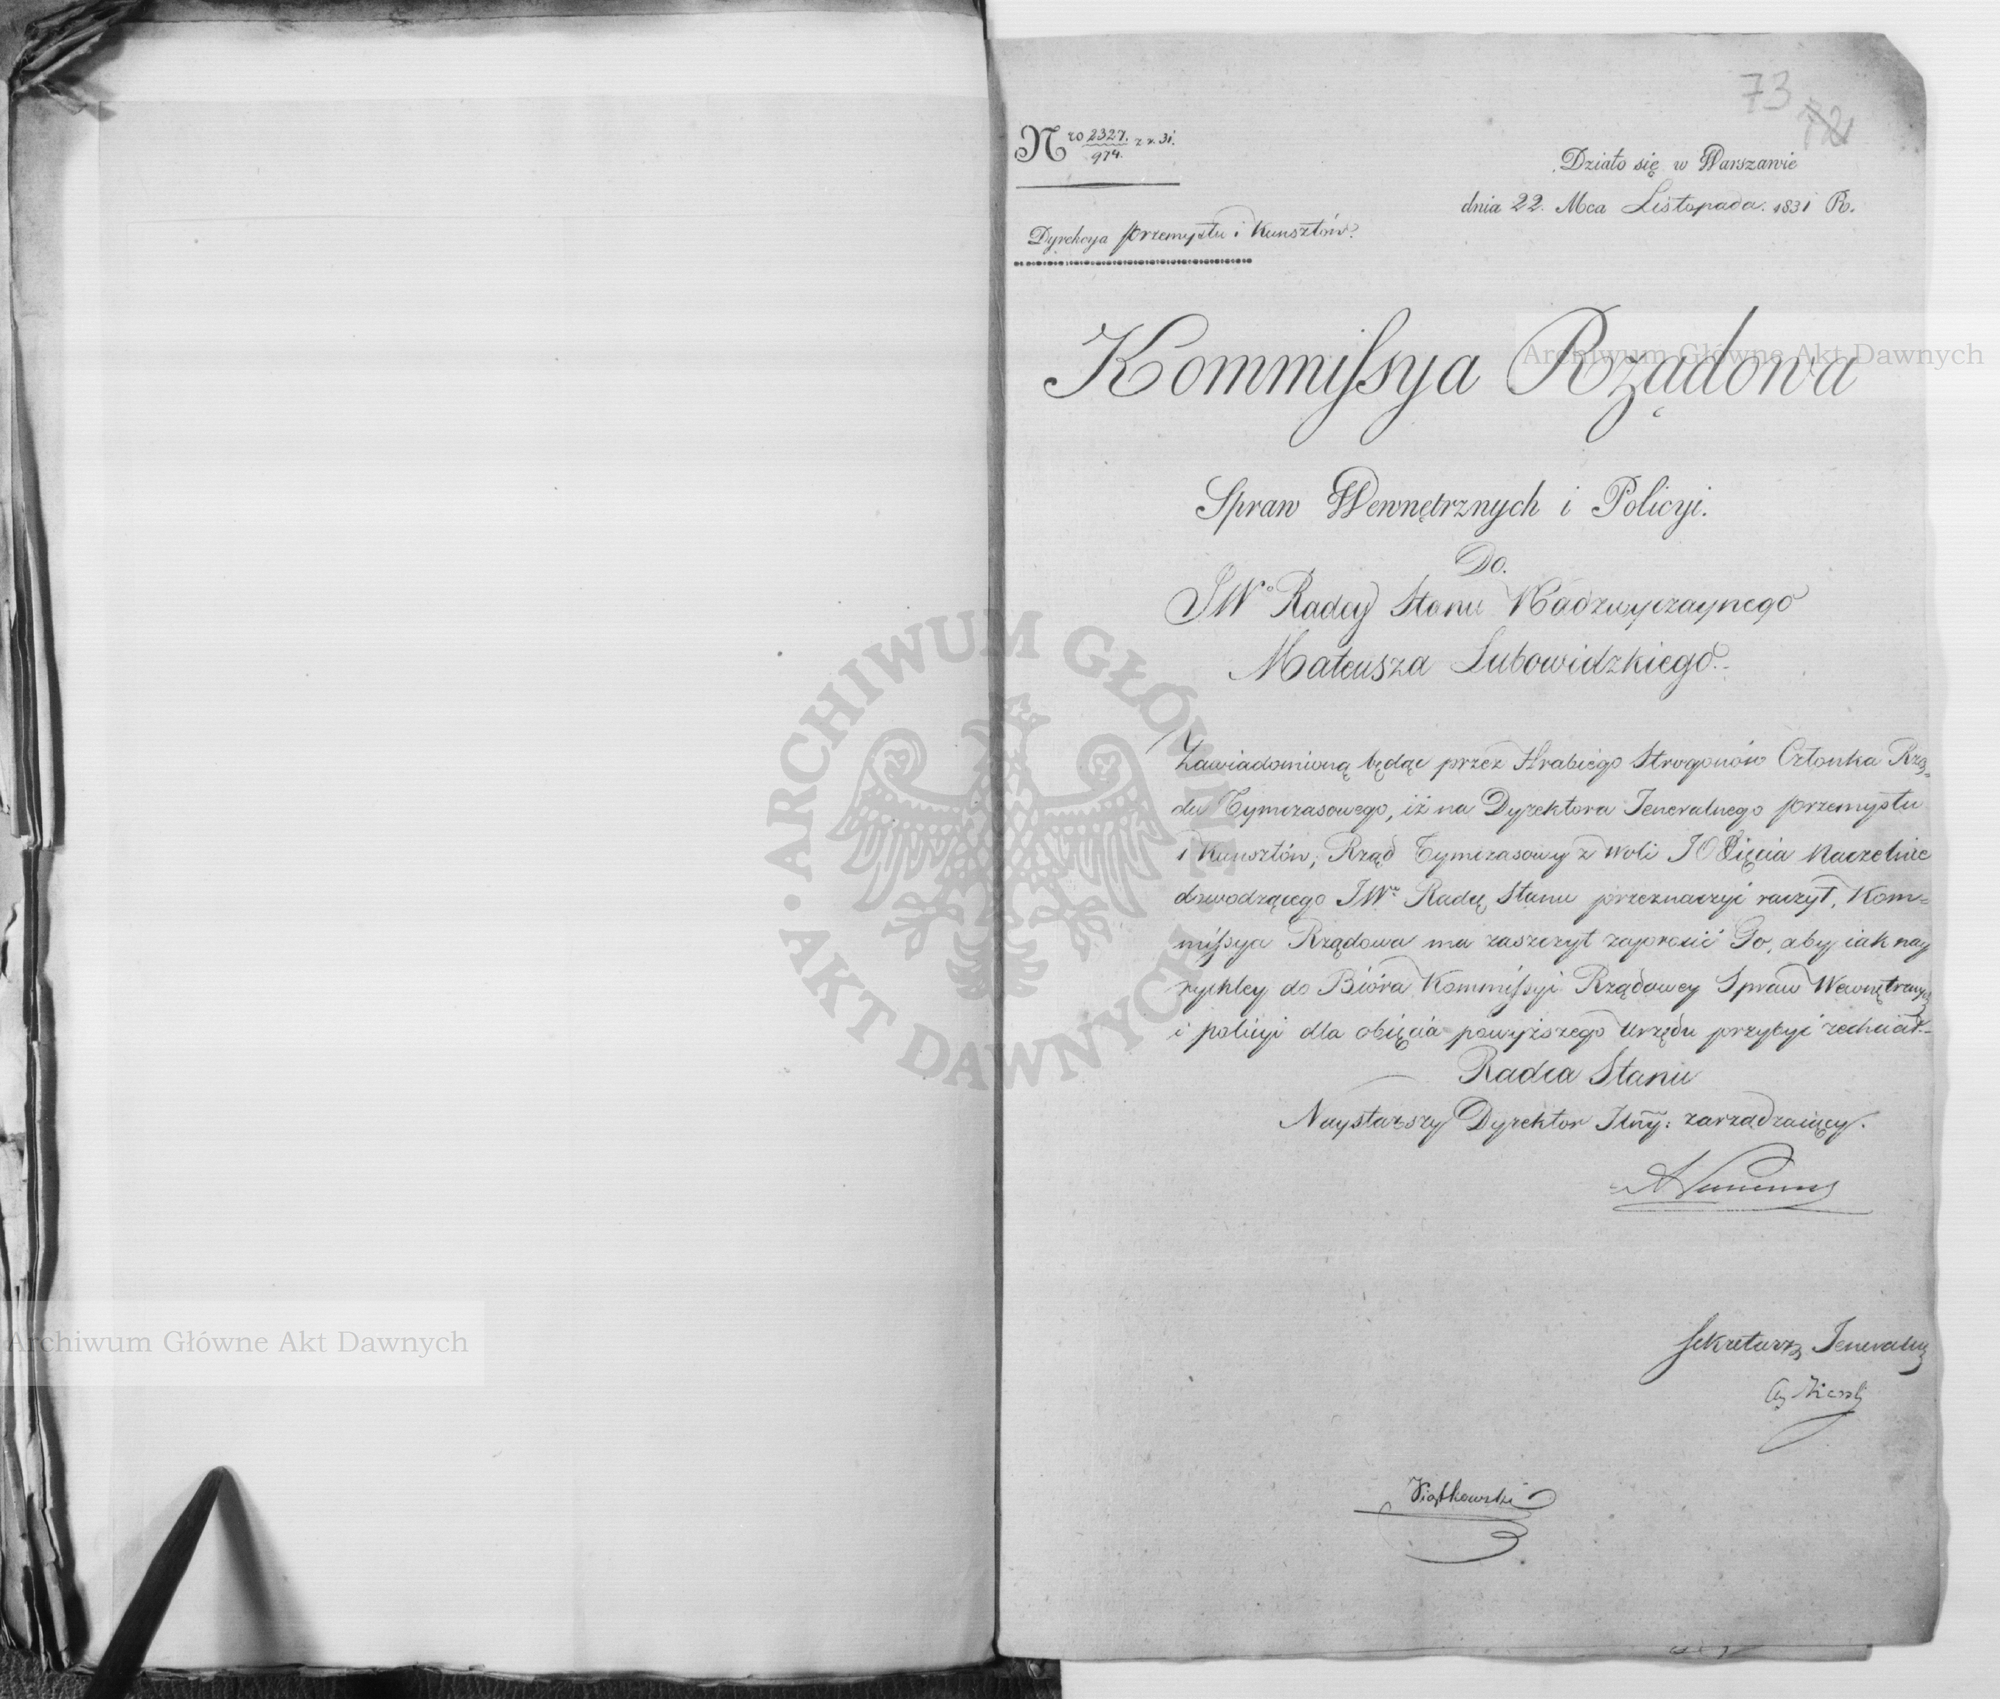 73
72
Nro 2327. z r. 31.
974.
Działo się w Warszawie
dnia 22. Mca Listopada. 1831 R.
Dyrekcya Przemysłu i Kunsztów.
Kommissya Rządowa
Archiwum Główne Akt Dawnych
Spraw Wewnętrznych i Policyi.
Do.
JWo Radcy Stanu Nadzwyczaynego
Mateusza Lubowidzkiego.
ARCHIWUM GŁÓWNE · AKT DAWNYCH ·
Zawiadomioną będąc przez Hrabiego Strogonów Członka Rzą-
du Tymczasowego, iż na Dyrektora Jeneralnego Przemysłu
i Kunsztów, Rząd Tymczasowy z Woli JO Xięcia Naczelnie
dowodzącego JWo Radcę Stanu przeznaczyć raczył, Kom-
missya Rządowa ma zaszczyt zaprosić Go, aby iak nay
rychley do Bióra Kommissyi Rządowey Spraw Wewnętrznych
i policyi dla obięcia powyższego Urzędu przybyć zechciał.
Radca Stanu
Naystarszy Dyrektor Jlny: zarządzaiący.
Sekretarz Jeneralny
Archiwum Główne Akt Dawnych
Wiątkowski